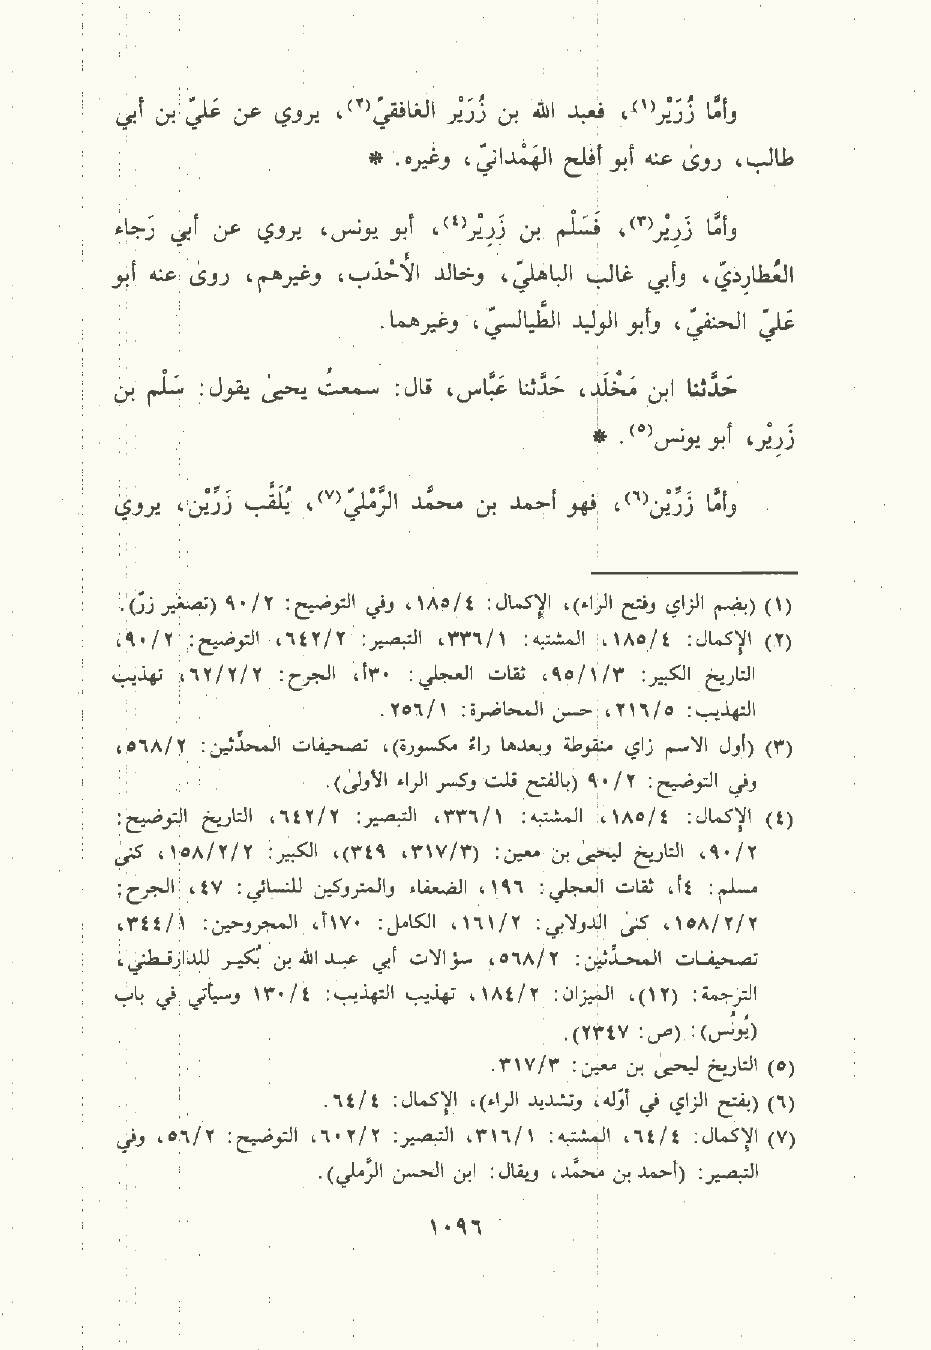 وأمَّا زُرَيْر(١)، فعبد الله بن زُرَيْر الغافقيّ(٢)، يروي عن عَليّ بن أبي
طالب، روىٰ عنه أبو أفلح الهَمْدانيّ، وغيره. *
وأمَّا زَرِيْر(٣)، فَسَلْم بن زَرِيْر(٤)، أبو يونس، يروي عن أبي رَجاء
العُطارِديّ، وأبي غالب الباهليّ، وخالد الأَحْدَب، وغيرهم، روىٰ عنه أبو
عَليّ الحنفيّ، وأبو الوليد الطَّيالسيّ، وغيرهما.
حَدَّثنا ابن مَخْلَد، حَدَّثنا عَبَّاس، قال: سمعتُ يحيىٰ يقول: سَلْم بن
زَرِيْر، أبو يونس(٥). *
وأمَّا زَرِّيْن(٦)، فهو أحمد بن محمَّد الرَّمْليّ(٧)، يُلَقَّب زَرِّيْن، يروي
(١) (بضم الزاي وفتح الراء)، الإكمال: ٤/١٨٥، وفي التوضيح: ٢/٩٠ (تصغير زرّ).
(٢) الإكمال: ٤/١٨٥، المشتبه: ١/٣٣٦، التبصير: ٢/٦٤٢، التوضيح: ٢/٩٠،
التاريخ الكبير: ٣/١/٩٥، ثقات العجلي: ٣٠أ، الجرح: ٢/٢/٦٢، تهذيب
التهذيب: ٥/٢١٦، حسن المحاضرة: ١/٢٥٦.
(٣) (أول الاسم زاي منقوطة وبعدها راءٌ مكسورة)، تصحيفات المحدِّثين: ٢/٥٦٨،
وفي التوضيح: ٢/٩٠ (بالفتح قلت وكسر الراء الأولىٰ).
(٤) الإكمال: ٤/١٨٥، المشتبه: ١/٣٣٦، التبصير: ٢/٦٤٢، التاريخ التوضيح:
٢/٩٠، التاريخ ليحيىٰ بن معين: (٣/٣١٧، ٣٤٩)، الكبير: ٢/٢/١٥٨، كنىٰ
مسلم: ٤أ، ثقات العجلي: ١٩٦، الضعفاء والمتروكين للنسائي: ٤٧، الجرح:
٢/٢/١٥٨، كنىٰ الدولابي: ٢/١٦١، الكامل: ١٧٠أ، المجروحين: ١/٣٤٤،
تصحيفات المحدِّثين: ٢/٥٦٨، سؤالات أبي عبد الله بن بُكير للدارقطني،
الترجمة: (١٢)، الميزان: ٢/١٨٤، تهذيب التهذيب: ٤/١٣٠ وسيأتي في باب
(يُونُس): (ص: ٢٣٤٧).
(٥) التاريخ ليحيىٰ بن معين: ٣/٣١٧.
(٦) (بفتح الزاي في أوّله، وتشديد الراء)، الإكمال: ٤/٦٤.
(٧) الإكمال: ٤/٦٤، المشتبه: ١/٣١٦، التبصير: ٢/٦٠٢، التوضيح: ٢/٥٦، وفي
التبصير: (أحمد بن محمَّد، ويقال: ابن الحسن الرَّملي).
١٠٩٦